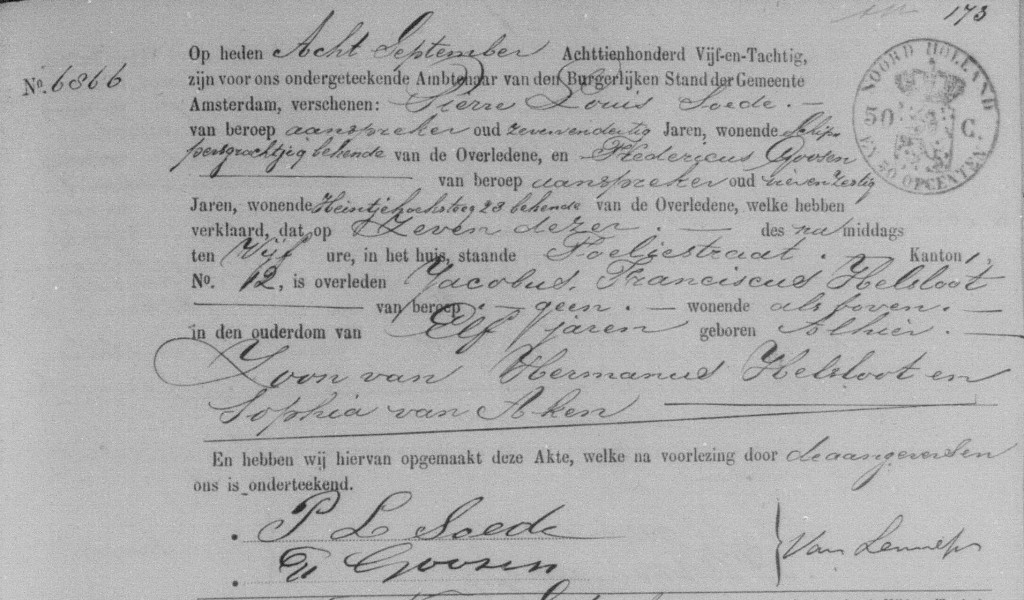 173
No. 6866
Op heden Acht September Achttienhonderd Vijf-en-Tachtig,
zijn voor ons ondergeteekende Ambtenaar van den Burgerlijken Stand der Gemeente
Amsterdam, verschenen: Pierre Louis Soede. —
van beroep aanspreker oud zevenendertig Jaren, wonende
behende van de Overledene, en Fredericus Goosen
van beroep aanspreker oud vierenzestig
Jaren, wonende Heintjehoeksteeg 23 behende van de Overledene, welke hebben
verklaard, dat op Zeven dezer. — des namiddags
ten Vijf ure, in het huis, staande Foeliestraat. Kanton 1,
No. 12, is overleden Jacobus, Franciscus Helsloot
— van beroep. — geen. — wonende als boven. —
in den ouderdom van Elf jaren geboren Alhier. —
Zoon van Hermanus Helsloot en
Sophia van Aken —
En hebben wij hiervan opgemaakt deze Akte, welke na voorlezing door de aangeversen
ons is onderteekend.
P L Soede
F Goosen
Van Lennep
NOORD HOLLAND
50 C.
EN 50 OPCENTEN